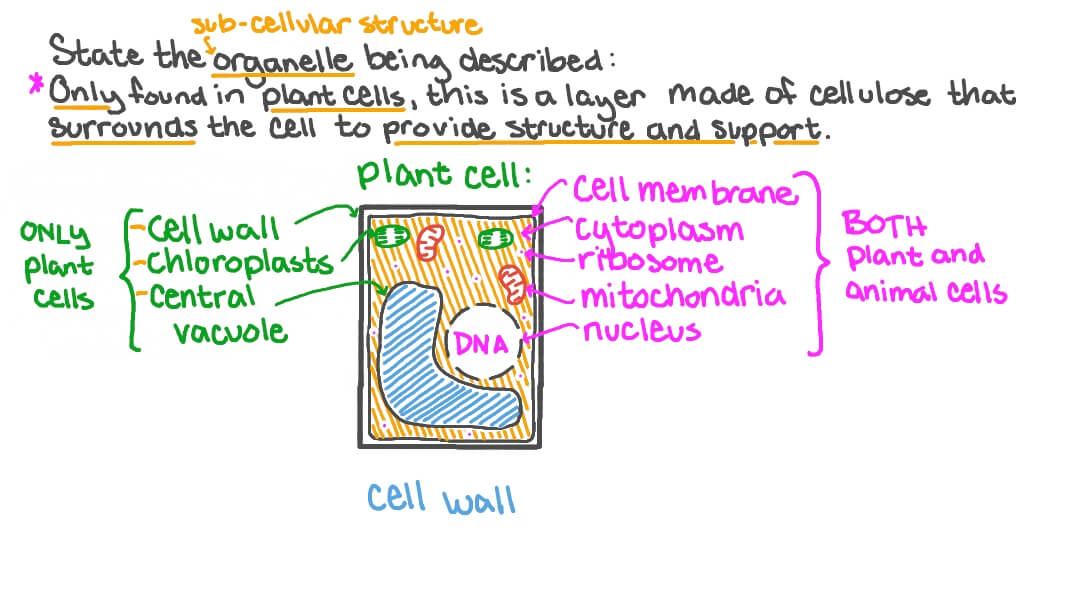 sub-cellular structure
State the organelle being described:
* Only found in plant cells, this is a layer made of cellulose that
surrounds the cell to provide structure and support.
plant cell:
ONLY
plant
cells
- cell wall
- chloroplasts
- central
vacuole
DNA
cell membrane
cytoplasm
ribosome
mitochondria
nucleus
BOTH
plant and
animal cells
cell wall